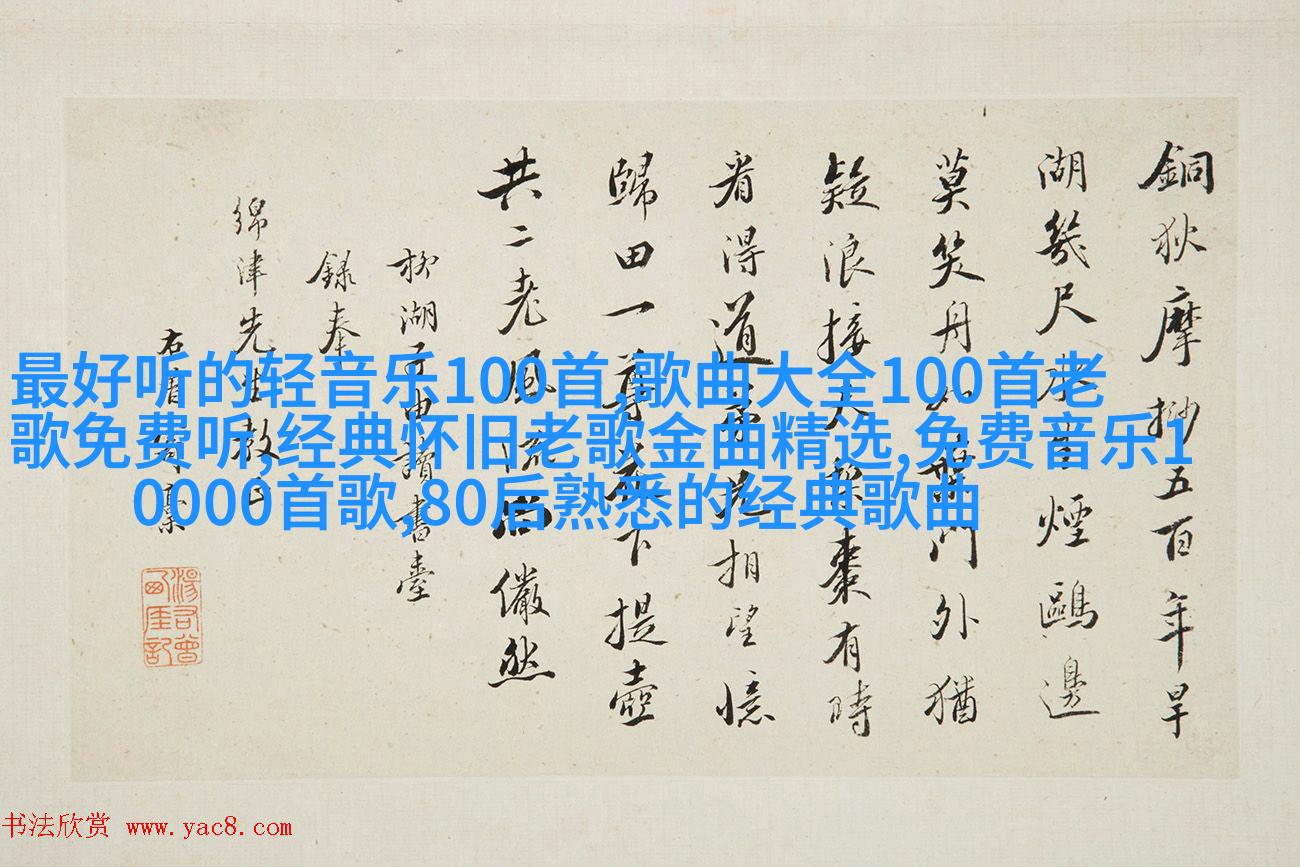 銅狄摩抄五百年旱
湖幾尺 煙鷗邊
莫笑丹 門外猶
疑浪接天 棗有時
看得道 相望憶
歸田一尊 下提壺
共二老風流 儼然
柳湖 讀書臺
錄奉
綿津先生教
右曾
湯右曾
西厓記
最好听的轻音乐100首,歌曲大全100首老
歌免费听,经典怀旧老歌金曲精选,免费音乐1
0000首歌,80后熟悉的经典歌曲
书法欣赏 www.yac8.com